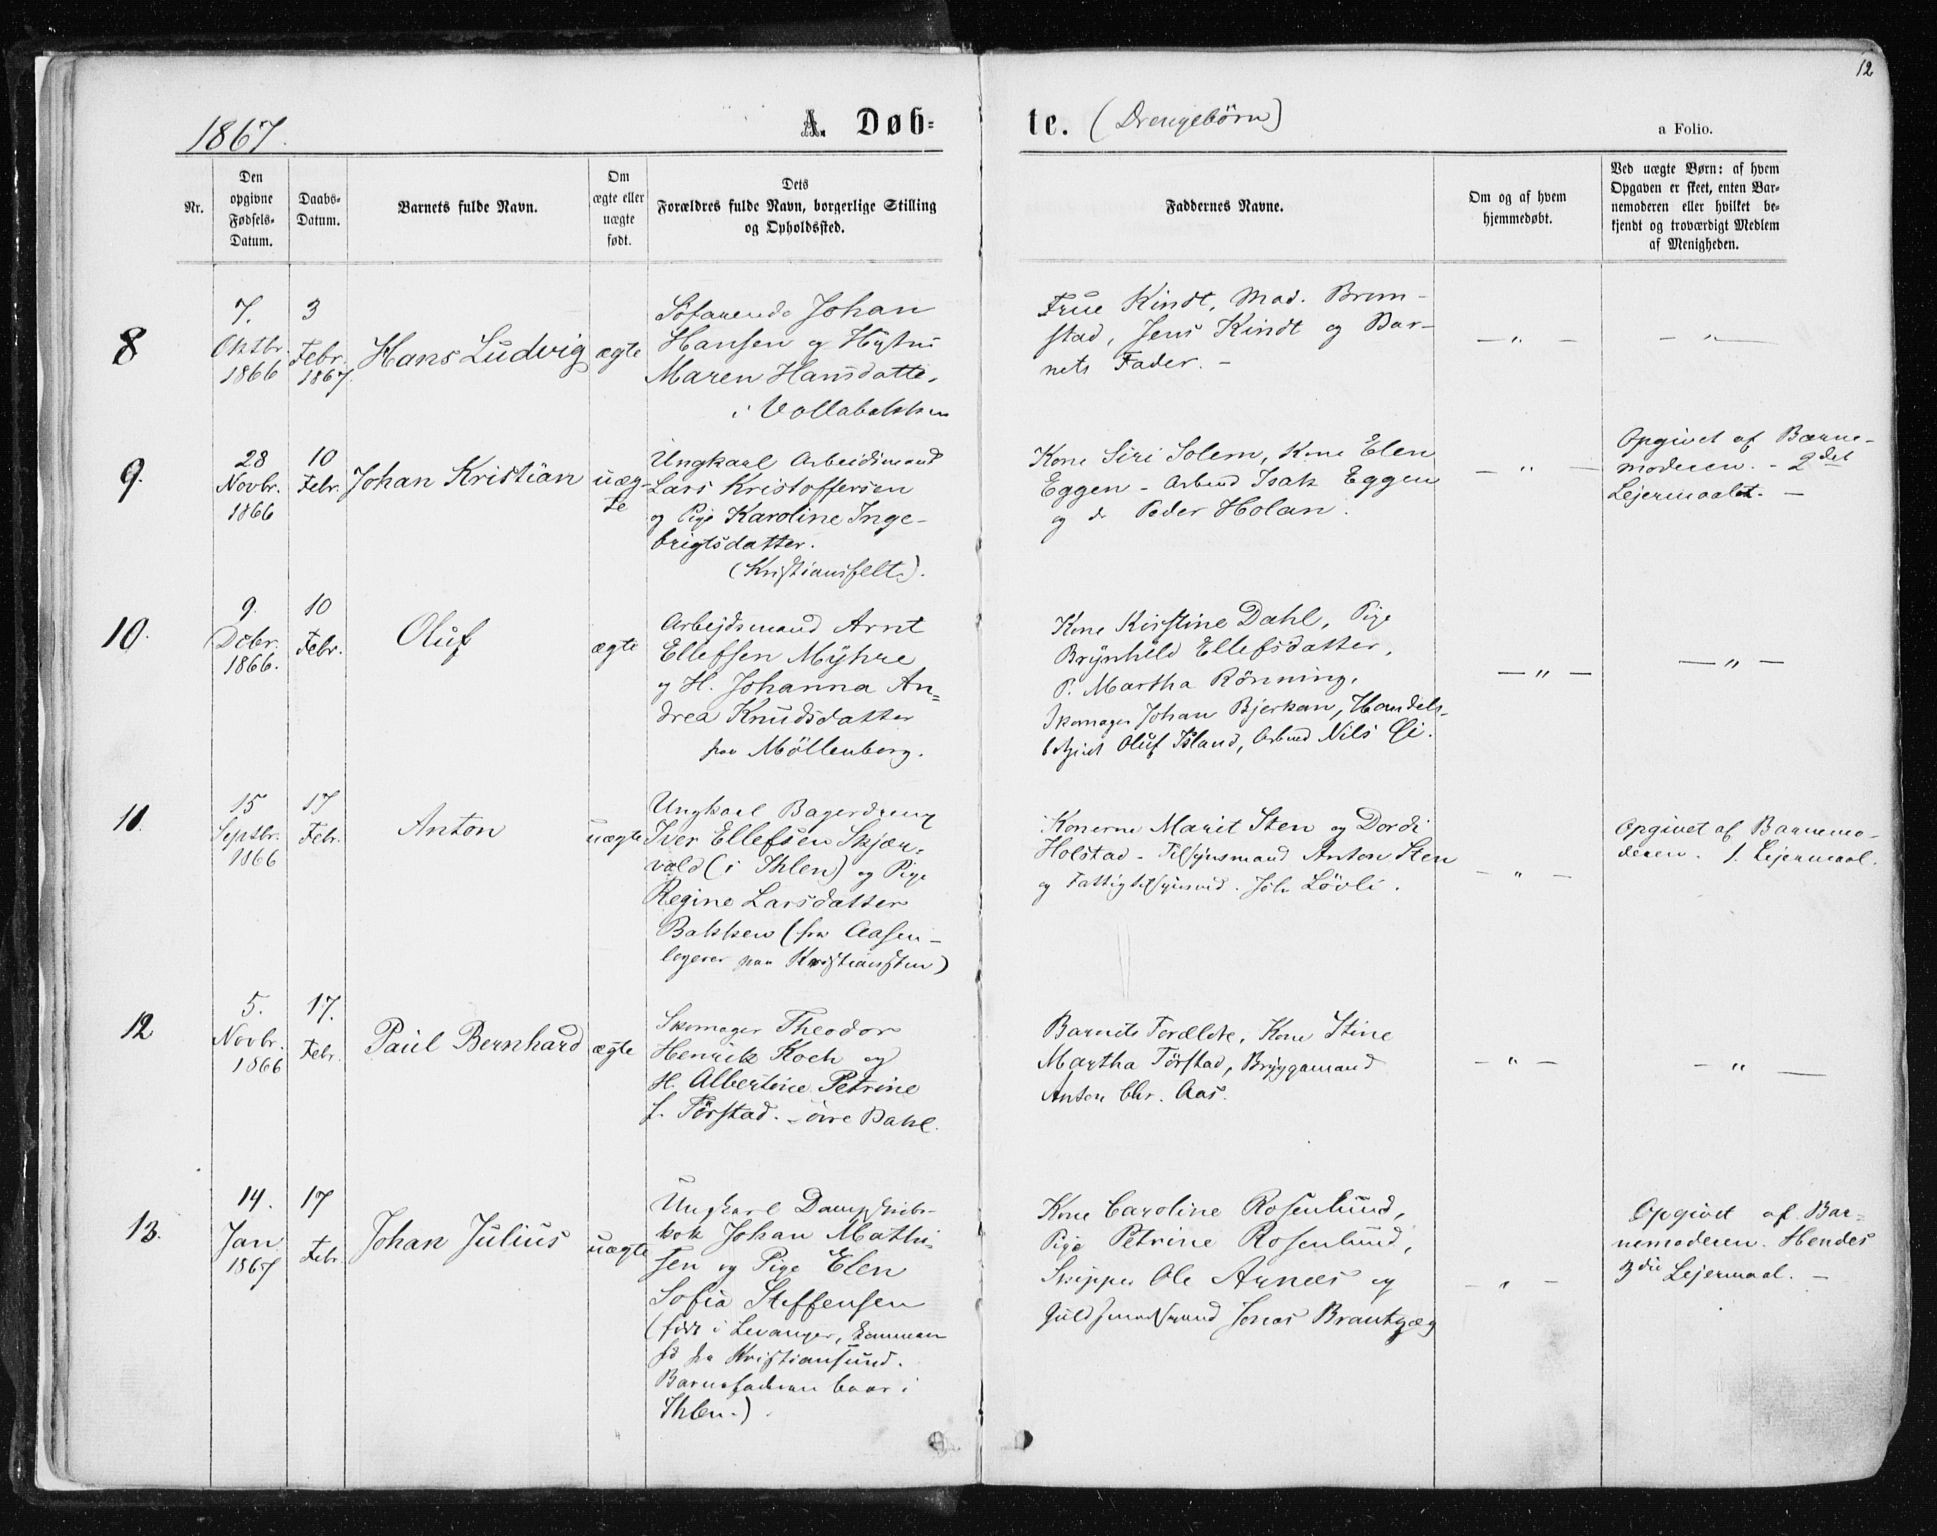 12
1867.
A. Døb-
te. (Drengebörn)
a Folio.
Nr.
Den
opgivne
Fødsels-
Datum.
Daabs-
Datum.
Barnets fulde Navn.
Om
ægte eller
uægte
født.
Dets
Forældres fulde Navn, borgerlige Stilling
og Opholdssted.
Faddernes Navne.
Om og af hvem
hjemmedøbt.
Ved uægte Børn: af hvem
Opgaven er skeet, enten Bar-
nemoderen eller hvilket be-
kjendt og troværdigt Medlem
af Menigheden.
8
7.
Oktbr.
1866
3
Febr.
1867.
Hans Ludvig
ægte
Söfarende Johan
Hansen og Hustru
Maren Hansdatter
i Vollabakken
Frue Kindt, Mad. Brem-
stad, Jens Kindt og Bar-
nets Fader. -
— " —
— " —
9.
28
Novbr.
1866
10
Febr.
Johan Kristian
uæg-
te
Ungkarl Arbeidsmand
Lars Kristoffersen
og Pige Karoline Inge-
brigtsdatter.
(Kristiansfelt).
Kone Siri Solem, Kone Elen
Eggen - Arbmd Isak Eggen
og do Peder Holan.
— " —
Opgivet af Barne-
moderen. - 2det
Lejermaal. —
10.
9.
Debr.
1866.
10
Febr.
Oluf
ægte
Arbejdsmand Arnt
Ellefsen Myhre
og H. Johanna An-
drea Knudsdatter
paa Möllenberg.
Kone Kirstine Dahl, Pige
Brynhild Ellefsdatter,
P. Martha Rönning,
Skomager Johan Bjerkan, Handels-
betjent Oluf Island, Arbmd Nils Öi.
— " —
— " —
11.
15
Septbr.
1866
17
Febr.
Anton
uægte
Ungkarl Bagerdreng
Iver Ellefsen Skjær-
vold (i Ihlen) og Pige
Regine Larsdatter
Bakken (fra Aasen-
logerer paa Kristiansten)
Konerne Marit Sten og Dordi
Holstad - Tilsynsmand Anton Sten
og Fattigtilsynsmd. Joh. Lövli.
— " —
Opgivet af Barnemo-
deren. 1. Lejermaal.
12
5.
Novbr.
1866
17.
Febr.
Paul Bernhard
ægte
Skomager Theodor
Henrik Koch og
H. Albertine Petrine
f. Törstad. - övre Bakl.
Barnets Forældre, Kone Stine
Martha Törstad, Bryggemand
Anton Chr. Aas.
— " —
— " —
13.
14.
Jan
1867
17
Febr.
Johan Julius
uægte
Ungkarl Dampskibs-
kok Johan Mathi-
sen og Pige Elen
Sofia Steffensen
(född i Levanger, kommen
hid fra Kristiansund.
Barnefaderen boer i
Ihlen.)
Kone Caroline Rosenlund,
Pige Petrine Rosenlund,
Skipper Ole Arnees og
Guldsmedsvend Jonas Brantzæg
— " —
Opgivet af Bar-
nemoderen. Hendes
3die Lejermaal. —